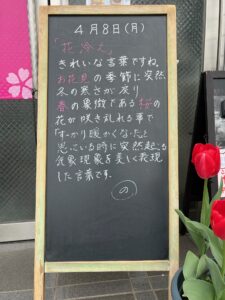 4月8日(月)
「花冷え」
きれいな言葉ですね。
お花見の季節に突然
冬の寒さが戻り
春の象徴である桜の
花が咲き乱れる事で
「すっかり暖かくなった」と
思っている時に突然起こる
気象現象を美しく表現
した言葉です。
の